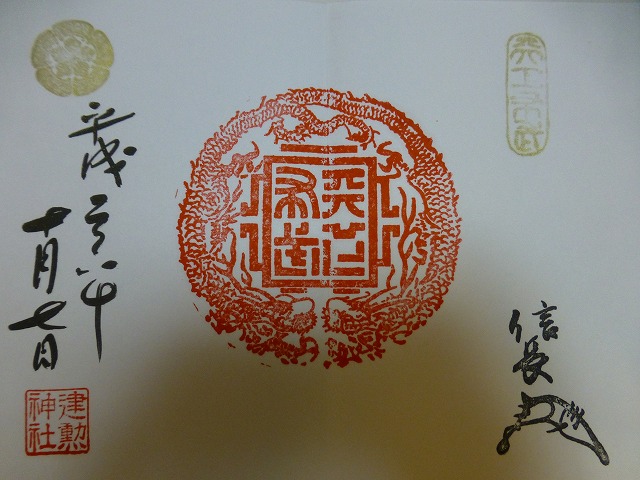 天下布武
天下布武
信長
平成二十六年
十月七日
建勲
神社